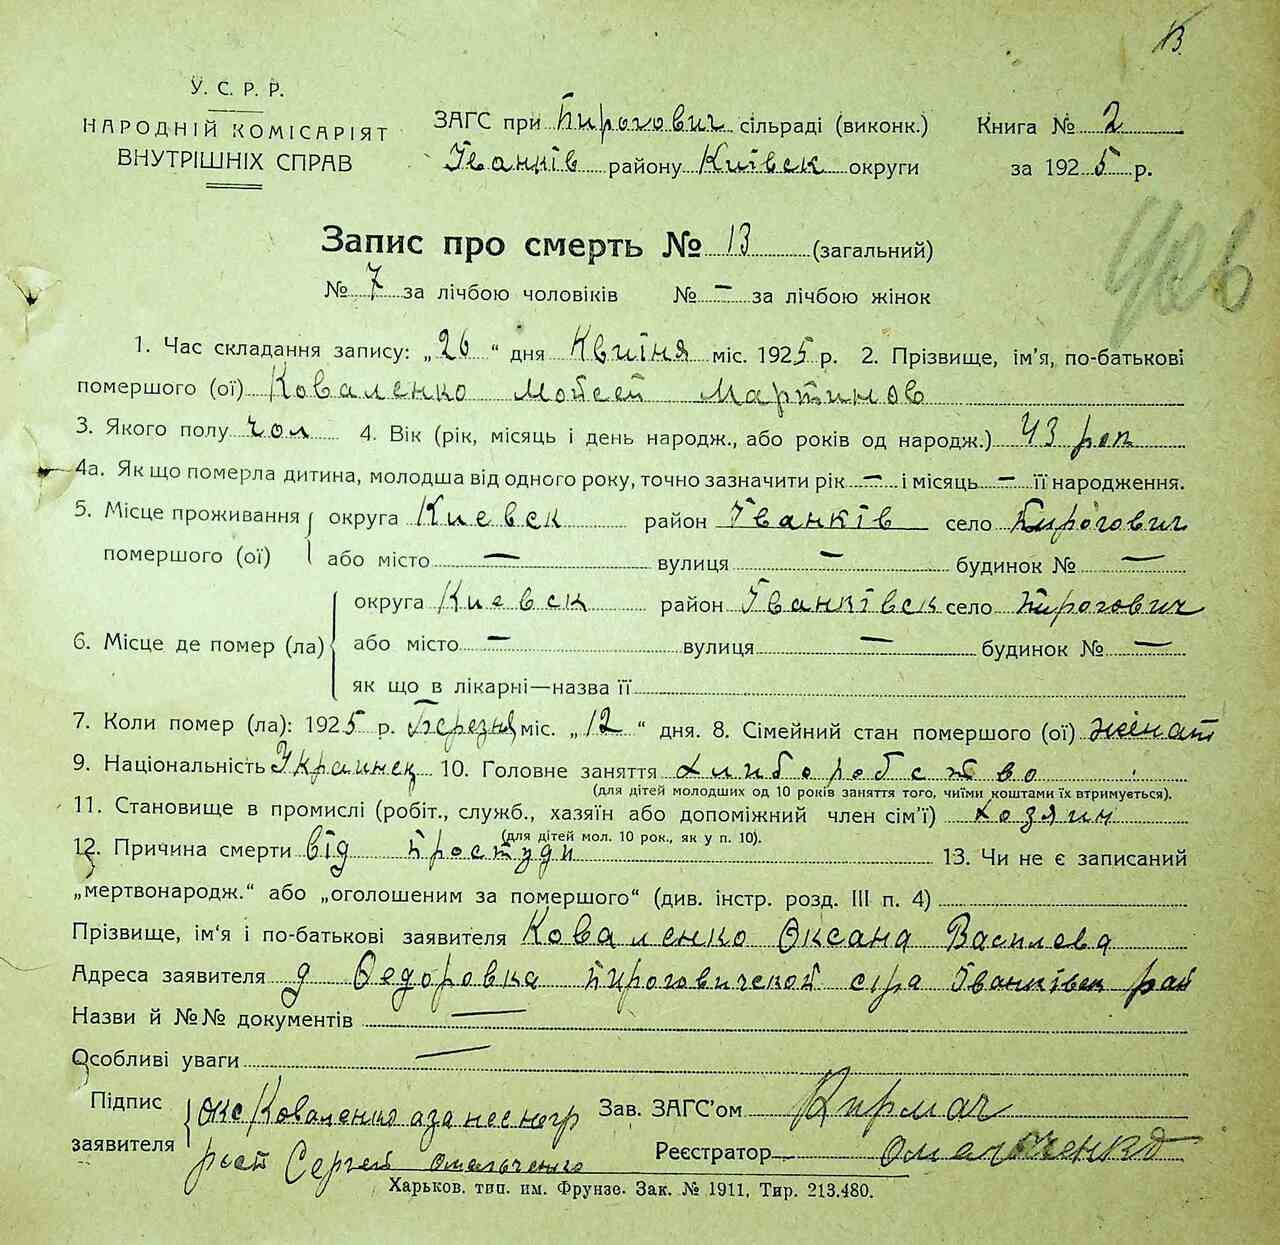 13.
У. С. Р. Р.
НАРОДНІЙ КОМІСАРІЯТ
ВНУТРІШНІХ СПРАВ
ЗАГС при Пирогович сільраді (виконк.)
Іванків району Київск округи
Книга № 2
за 1925 р.
Запис про смерть № 13 (загальний)
№ 7 за лічбою чоловіків № — за лічбою жінок
1. Час складання запису: „26“ дня Квитня міс. 1925 р. 2. Прізвище, ім'я, по-батькові
помершого (ої) Коваленко Мойсей Мартинов
3. Якого полу чол 4. Вік (рік, місяць і день народж., або років од народж.) 43 рок
4а. Як що померла дитина, молодша від одного року, точно зазначити рік — і місяць — її народження.
5. Місце проживання помершого (ої) округа Киевск район Іванків село Пирогович
або місто — вулиця — будинок № —
6. Місце де помер (ла) округа Киевск район Іванківск село Пирогович
або місто — вулиця — будинок № —
як що в лікарні—назва її
7. Коли помер (ла): 1925 р. Березня міс. „12“ дня. 8. Сімейний стан помершого (ої) женат
9. Національність Украинец 10. Головне заняття хлиборобство
(для дітей молодших од 10 років заняття того, чиїми коштами їх втримується).
11. Становище в промислі (робіт., служб., хазяїн або допоміжний член сім'ї) хозяин
(для дітей мол. 10 рок., як у п. 10).
12. Причина смерти від простуди 13. Чи не є записаний
„мертвонародж.“ або „оголошеним за помершого“ (див. інстр. розд. III п. 4)
Прізвище, ім'я і по-батькові заявителя Коваленко Оксана Василева
Адреса заявителя д Федоровка Пироговичской с/ра Іванківск рай
Назви й №№ документів —
Особливі уваги —
Підпис заявителя Окс Коваленко а за не Сергей Омельченко
Зав. ЗАГС'ом Кирмач
Реєстратор Омельченко
Харьков. тип. им. Фрунзе. Зак. № 1911, Тир. 213.480.